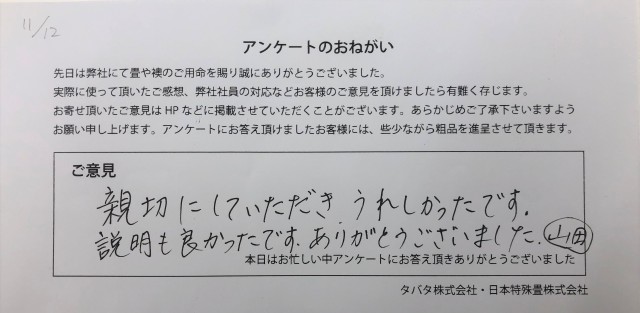 11/12
アンケートのおねがい
先日は弊社にて畳や襖のご用命を賜り誠にありがとうございました。
実際に使って頂いたご感想、弊社社員の対応などお客様のご意見を頂けましたら有難く存じます。
お寄せ頂いたご意見はHPなどに掲載させていただくことがございます。あらかじめご了承下さいますよう
お願い申し上げます。アンケートにお答え頂けましたお客様には、些少ながら粗品を進呈させて頂きます。
ご意見
親切にしていただき うれしかったです。
説明も良かったです。ありがとうございました。山田
本日はお忙しい中アンケートにお答え頂きありがとうございました
タバタ株式会社・日本特殊畳株式会社